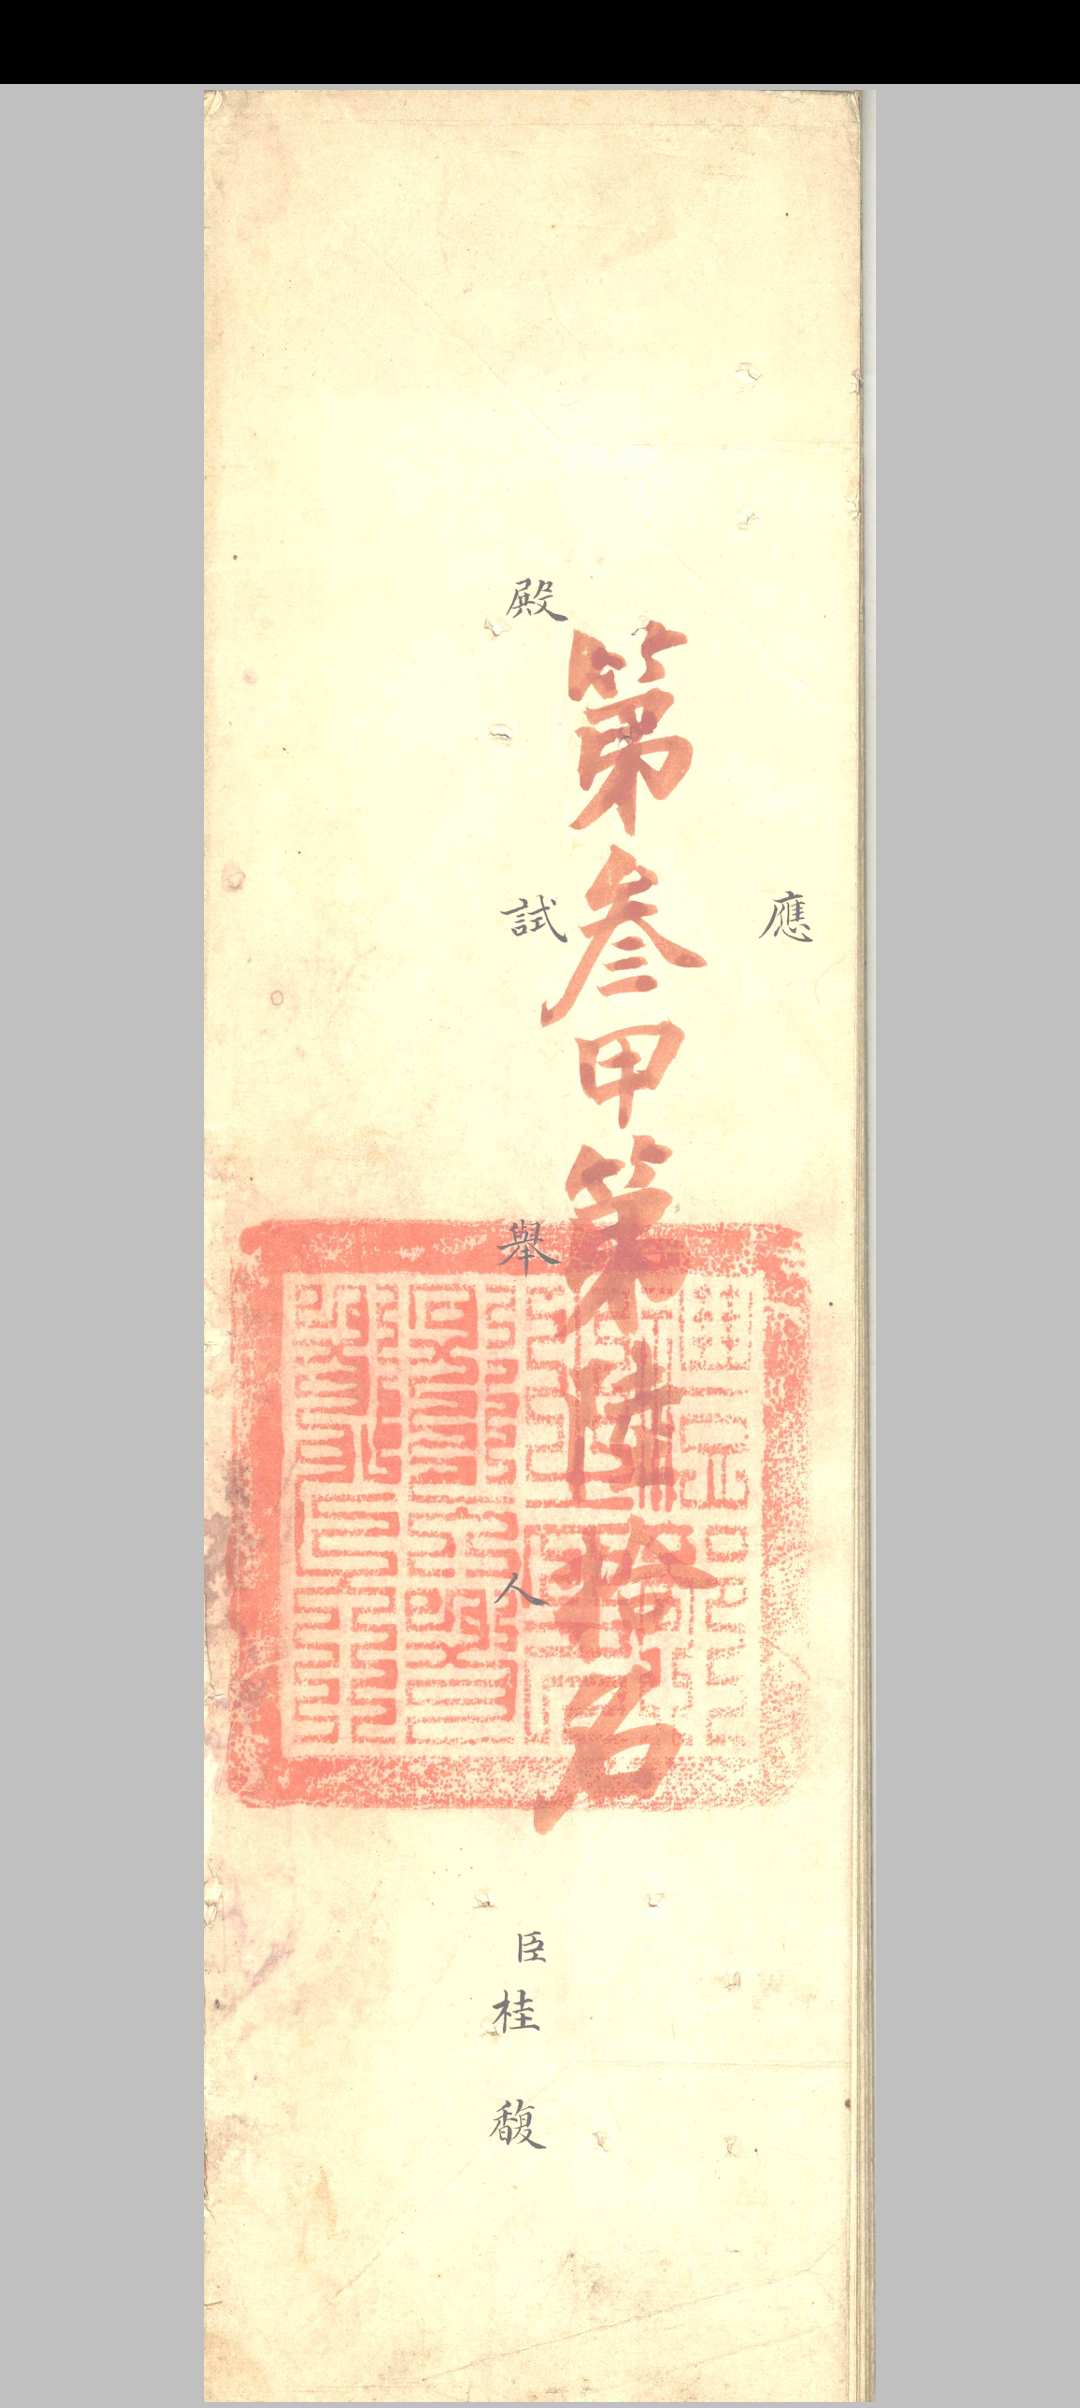 應
第叄甲第陸拾名
殿試舉人臣桂馥